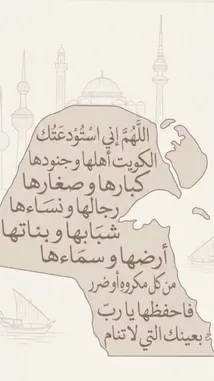 اللَّهُمَّ إني اسْتَوْدَعَتُك
الكويت أهلها وجنودها
كبارها وصغارها
رجالها ونسَاءها
شبَابها وبناتها
أرضها وسمَاءها
من كل مكروه أو ضرر
فاحفظها يا ربّ
بعينك التي لا تنام